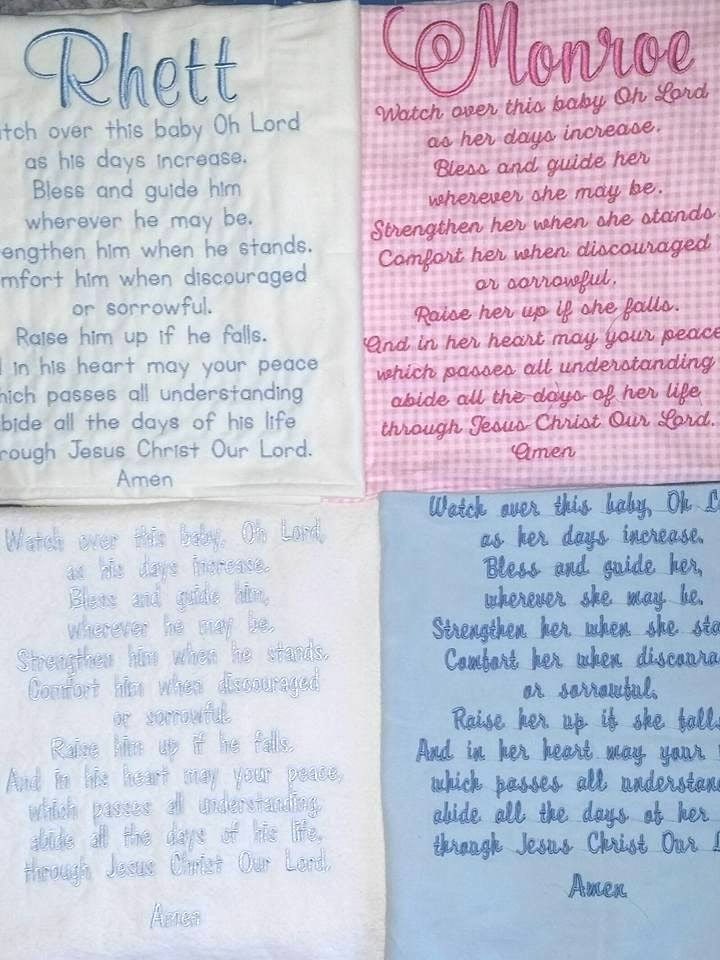 Rhett
tch over this baby Oh Lord
as his days increase.
Bless and guide him
wherever he may be.
engthen him when he stands.
mfort him when discouraged
or sorrowful.
Raise him up if he falls.
in his heart may your peace
hich passes all understanding
bide all the days of his life
rough Jesus Christ Our Lord.
Amen
Monroe
Watch over this baby Oh Lord
as her days increase.
Bless and guide her
wherever she may be.
Strengthen her when she stands
Comfort her when discouraged
or sorrowful.
Raise her up if she falls.
And in her heart may your peace
which passes all understanding
abide all the days of her life
through Jesus Christ Our Lord.
Amen
Watch over this baby, Oh Lord,
as his days increase.
Bless and guide him,
wherever he may be.
Strengthen him when he stands.
Comfort him when discouraged
or sorrowful.
Raise him up if he falls.
And in his heart may your peace,
which passes all understanding,
abide all the days of his life,
through Jesus Christ Our Lord,
Amen
Watch over this baby, Oh L
as her days increase.
Bless and guide her,
wherever she may be.
Strengthen her when she sta
Comfort her when discoura
or sorrowful.
Raise her up if she falls
And in her heart may your
which passes all understan
abide all the days of her
through Jesus Christ Our L
Amen